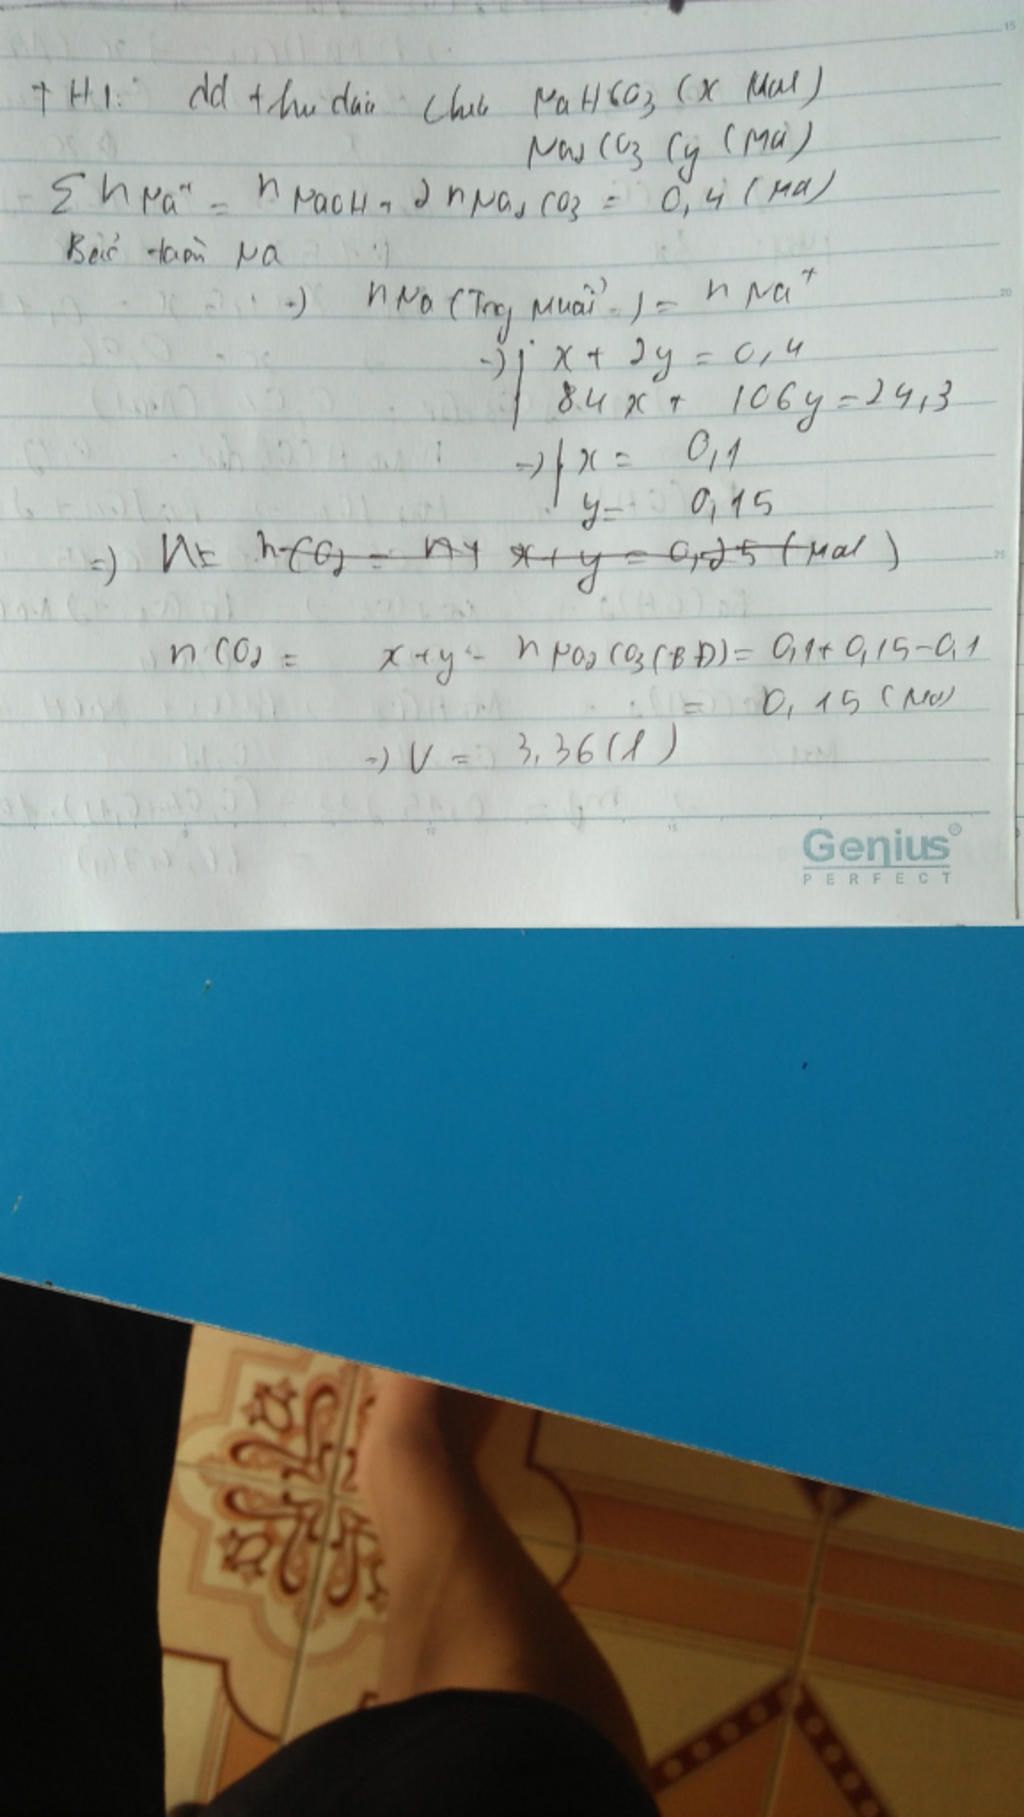 + TH1: dd thu được chứa NaHCO3 (x mol)
Na2CO3 (y (mol)
Σ nNa+ = nNaOH + 2nNa2CO3 = 0,4 (mol)
Bảo toàn Na
=) nNa (Trg muối) = nNa+
=) x + 2y = 0,4
84x + 106y = 24,3
=) x = 0,1
y = 0,15
=) nCO2 = x + y = 0,25 (mol)
nCO2 = x + y - nNa2CO3 (BĐ) = 0,1 + 0,15 - 0,1
= 0,15 (mol)
=) V = 3,36 (l)
Genius
PERFECT